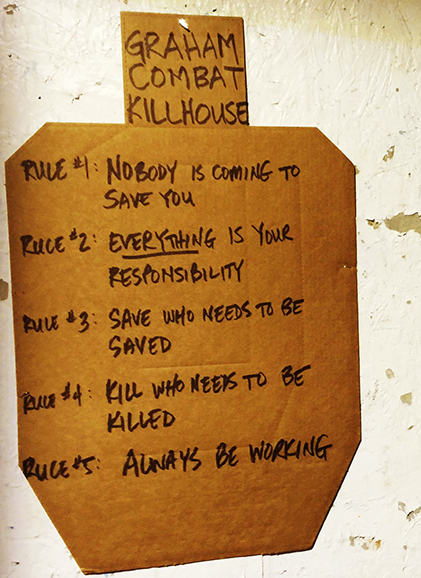 GRAHAM
COMBAT
KILLHOUSE
RULE #1: NOBODY IS COMING TO
SAVE YOU
RULE #2: EVERYTHING IS YOUR
RESPONSIBILITY
RULE #3: SAVE WHO NEEDS TO BE
SAVED
RULE #4: KILL WHO NEEDS TO BE
KILLED
RULE #5: ALWAYS BE WORKING